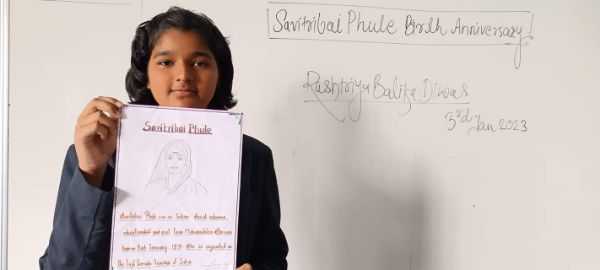 Savitribai Phule Birth Anniversary
Rashtriya Balika Diwas
3rd Jan 2023
Savitribai Phule
Savitribai Phule was an Indian Social reformer,
educationalist and poet from Maharashtra. She was
born on 3rd January, 1831. She is regarded as
the first female teacher of India.